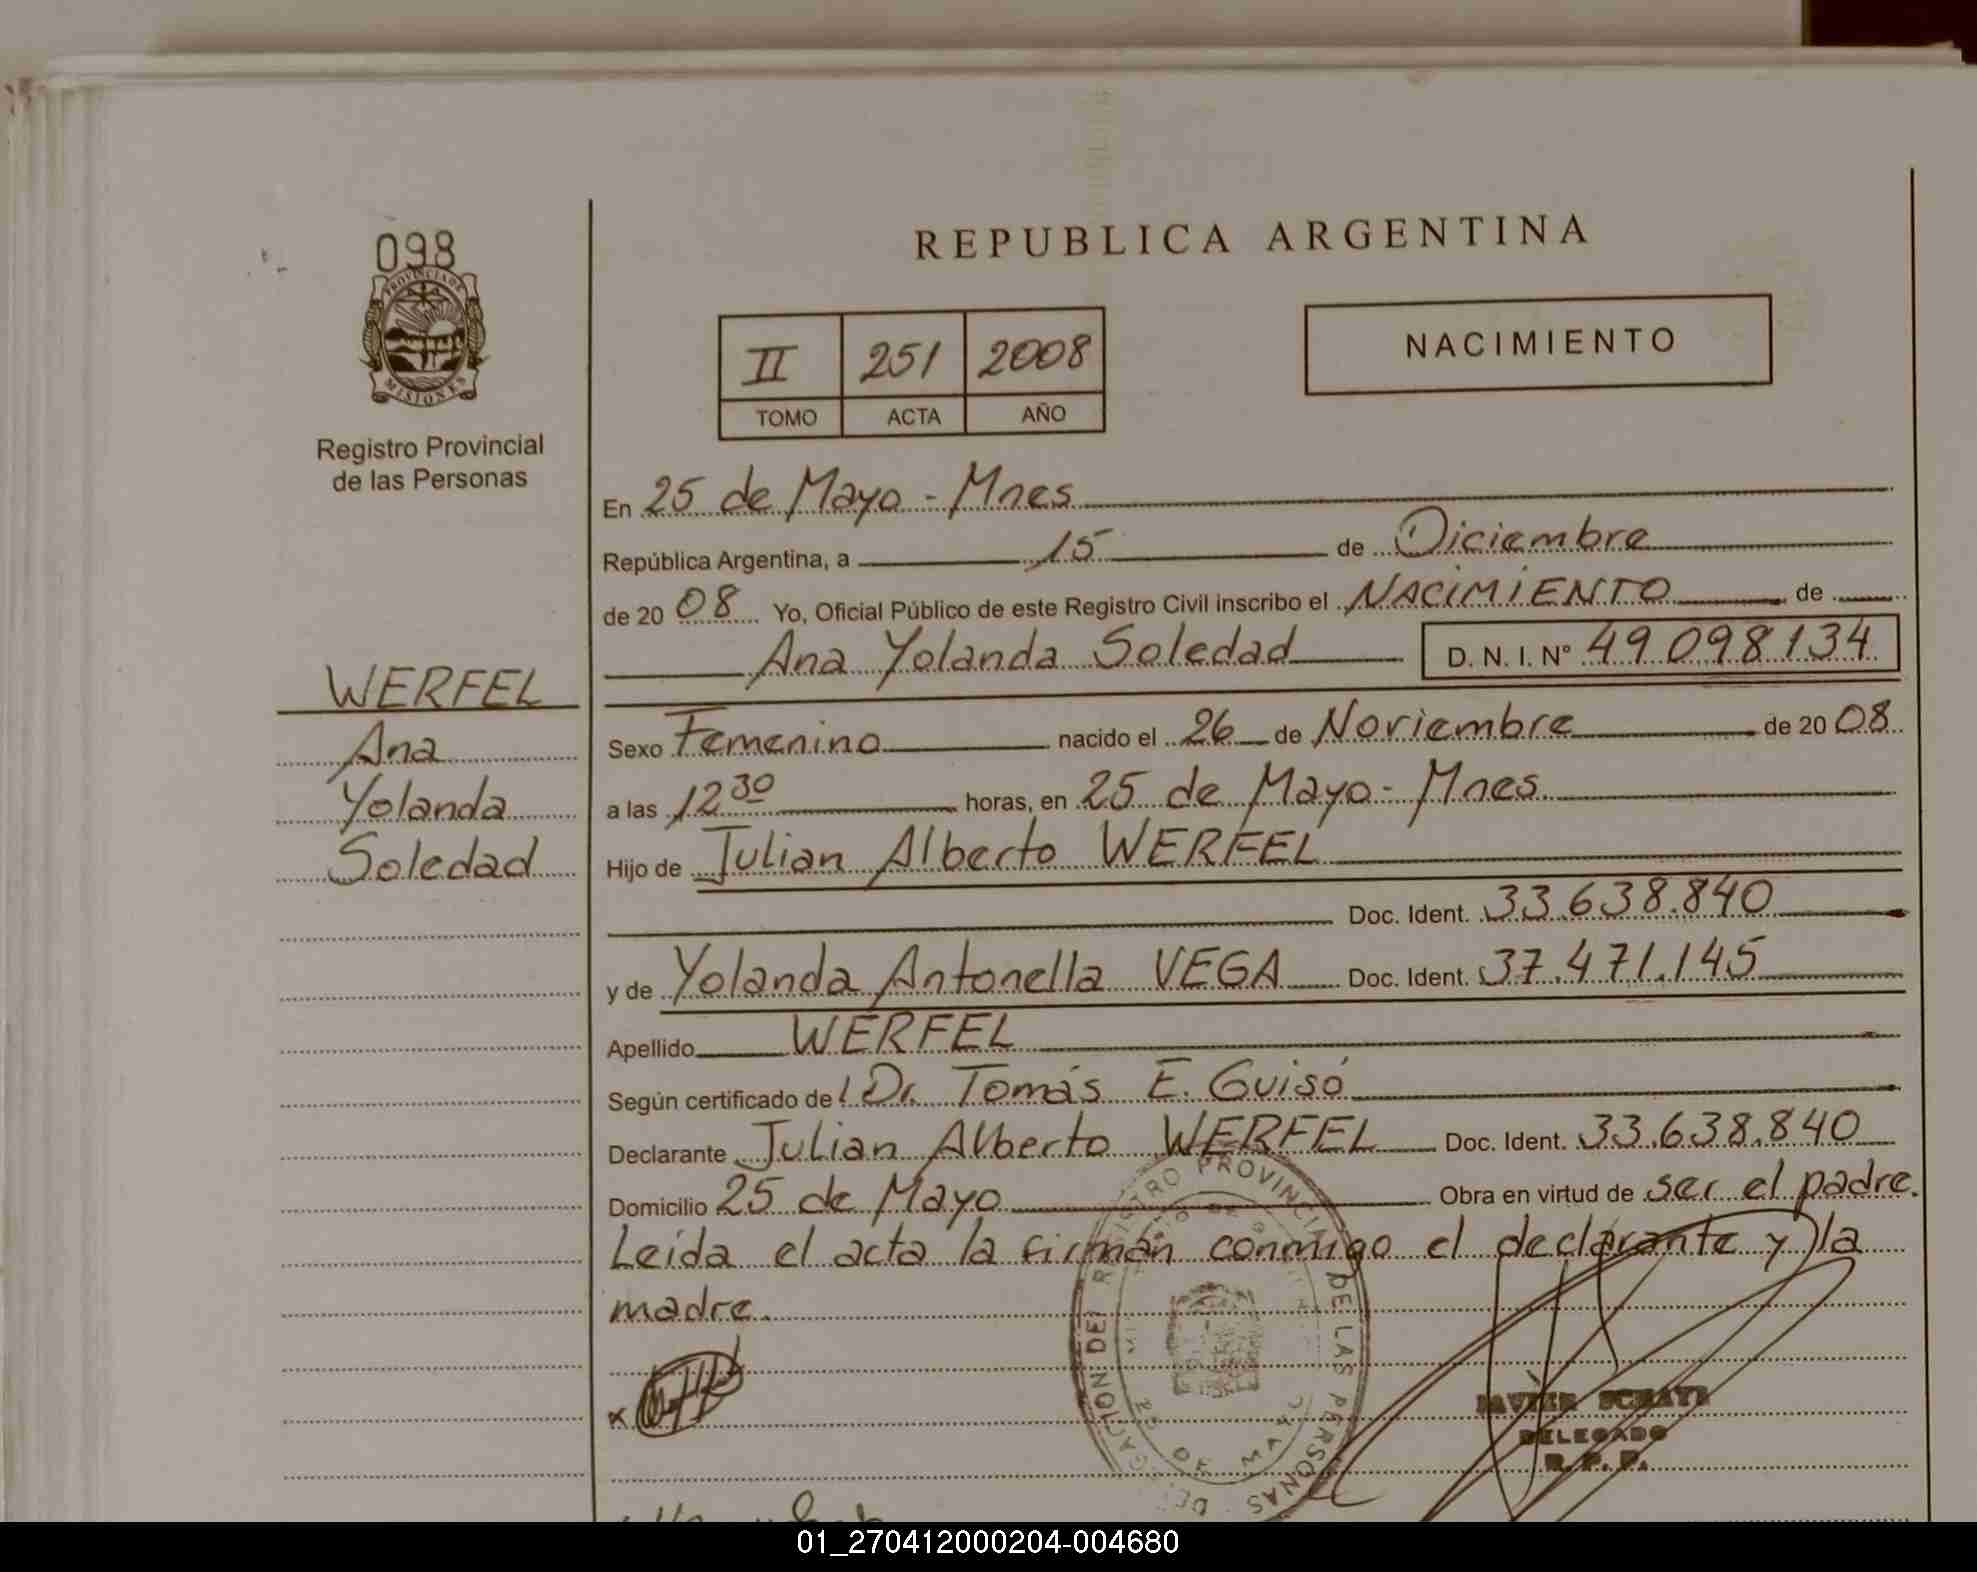 098
PROVINCIA DE
MISIONES
Registro Provincial
de las Personas
WERFEL
Ana
Yolanda
Soledad
REPUBLICA ARGENTINA
II 251 2008
TOMO ACTA AÑO
NACIMIENTO
En 25 de Mayo - Mnes
República Argentina, a 15 de Diciembre
de 20 08 Yo, Oficial Público de este Registro Civil inscribo el NACIMIENTO de
Ana Yolanda Soledad D. N. I. N° 49.098.134
Sexo Femenino nacido el 26 de Noviembre de 20 08
a las 12 30 horas, en 25 de Mayo - Mnes
Hijo de Julian Alberto WERFEL
Doc. Ident. 33.638.840
y de Yolanda Antonella VEGA Doc. Ident. 37.471.145
Apellido WERFEL
Según certificado del Dr. Tomás E. Guisó
Declarante Julian Alberto WERFEL Doc. Ident. 33.638.840
Domicilio 25 de Mayo Obra en virtud de ser el padre.
Leída el acta la firman conmigo el declarante y la
madre.
DELEGACION DEL REGISTRO PROVINCIAL DE LAS PERSONAS
25 DE MAYO
JAVIER
DELEGADO
R. P. P.
01_270412000204-004680